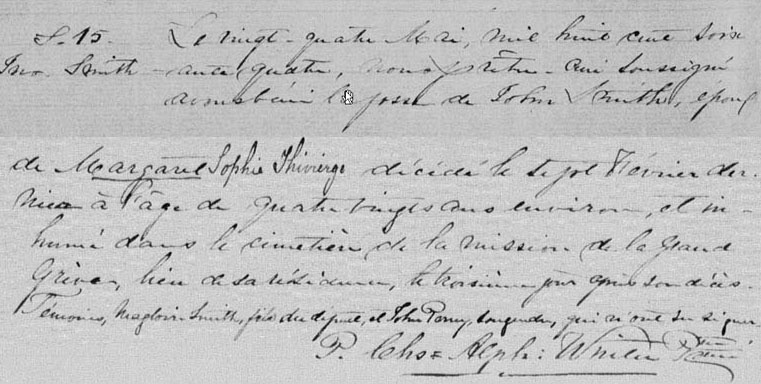 S. 15. Le vingt-quatre Mai, mil huit cent soix
Jno. Smith - ante quatre, nous prêtre curé soussigné
avons béni la fosse de John Smith, époux
de Margaret Sophie Thivierge décédé le sept Février der-
nier à l'âge de quatre vingts ans environ, et in-
humé dans le cimetière de la mission de la Grand
Grève, lieu de sa résidence, le troisième jour après son décès.
Témoins, Magloire Smith, fils du défunt, et John Perry, son gendre, qui n'ont su signer.
P. Chs= Alph: Winter Ptre